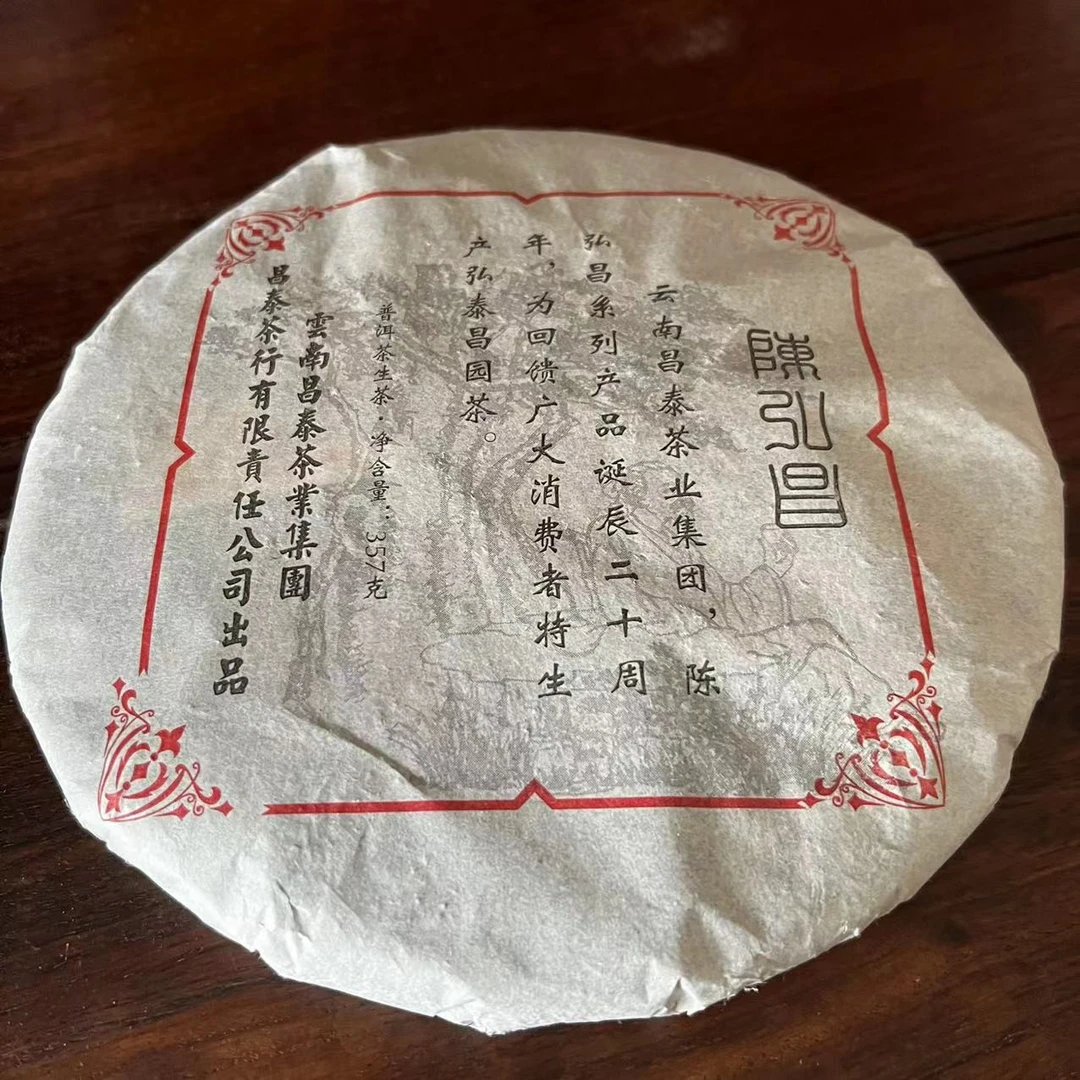 陳弘昌
云南昌泰茶业集团，陈
弘昌系列产品诞辰二十周
年，为回馈广大消费者特生
产弘泰昌园茶。
普洱茶生茶·净含量：357克
雲南昌泰茶業集團
昌泰茶行有限責任公司出品